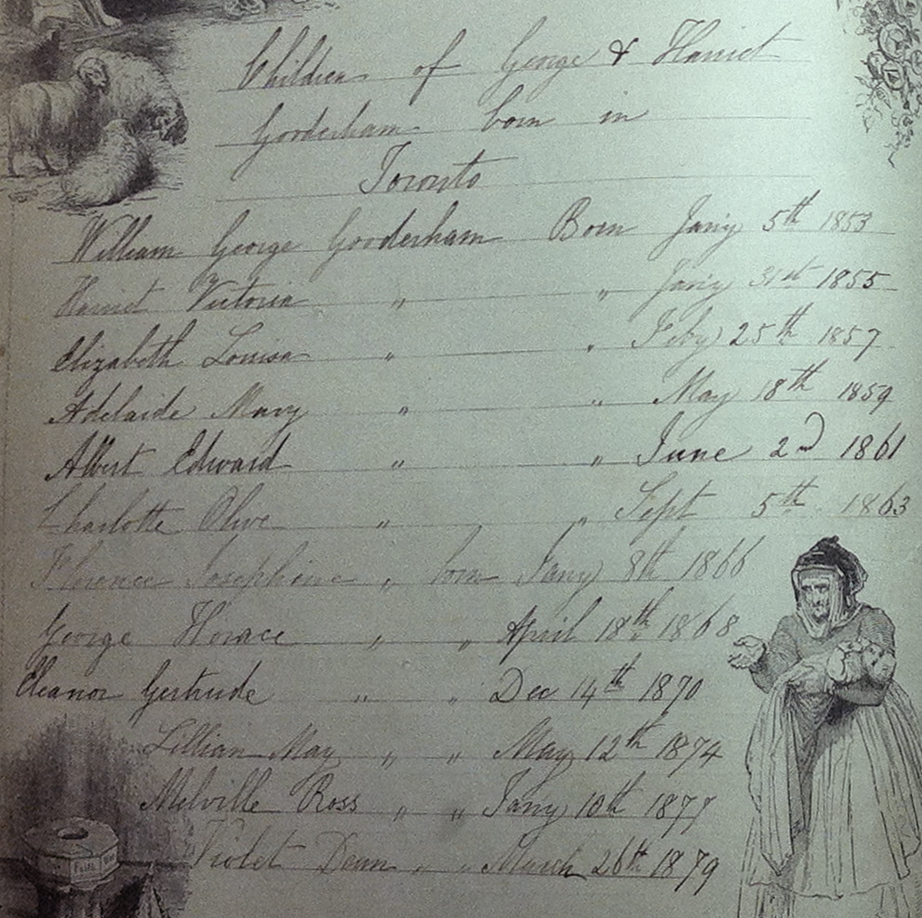 Children of George & Harriet
Gooderham born in
Toronto
William George Gooderham Born Jany 5th 1853
Harriet Victoria " " Jany 31st 1855
Elizabeth Louisa " " Feby 25th 1857
Adelaide Mary " " May 18th 1859
Albert Edward " " June 2nd 1861
Charlotte Olive " " Sept 5th 1863
Florence Josephine " born Jany 8th 1866
George Horace " " April 18th 1868
Eleanor Gertrude " " Dec 14th 1870
Lillian May " " May 12th 1874
Melville Ross " " Jany 10th 1877
Violet " " March 26th 1879